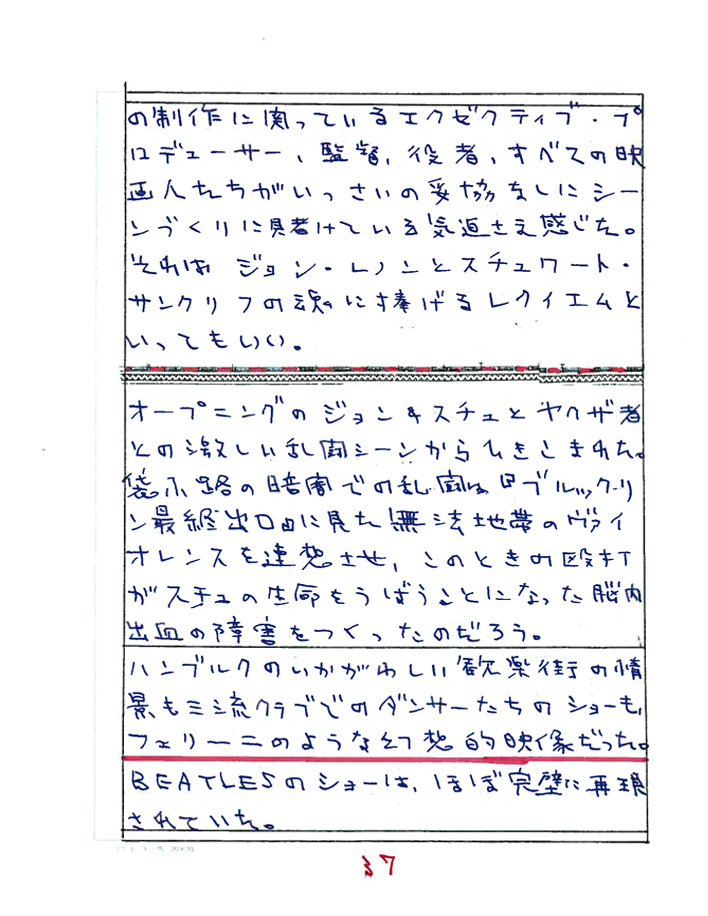 の制作に関っているエクゼクティブ・プ
ロデューサー、監督、役者、すべての映
画人たちがいっさいの妥協なしにシー
ンづくりに見着けている気迫さえ感じた。
それは ジョン・レノンとスチュワート・
サンクリフの魂に捧げるレクイエムと
いってもいい。
オープニングの ジョン&スチュとヤクザ者
との激しい乱闘シーンからひきこまれた。
袋小路の暗闇での乱闘は『ブルックリ
ン最終出口』に見た無法地帯のヴァイ
オレンスを連想させ、このときの殴打
がスチュの生命をうばうことになった脳内
出血の障害をつくったのだろう。
ハンブルクのいかがわしい歓楽街の情
景も三流クラブでのダンサーたちのショーも、
フェリーニのような幻想的映像だった。
BEATLESのショーは、ほぼ完璧に再現
されていた。
37